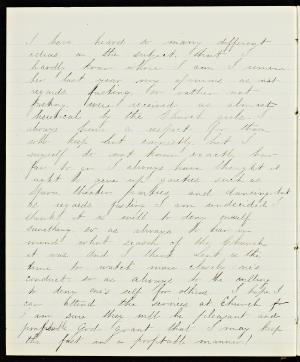 I have heard so many different
ideas on the subject that I
hardly know where I am I remem
ber last year my opinions as
regards fasting, or rather not
fasting, were received as almost
heretical by the Church girls. I
always have a respect for them
who keep Lent earnestly but I
myself do not know exactly how
far to go I always have thought it
right to give up parties such as
theatre parties and dancing but
as regards fasting I am undecided I
think it as well to deny myself
something so as always to bear in
mind what season of the Church
it was and I think Lent is the
time to watch more closely one's
conduct so as always to be willing
to deny one's self for others I hope I
can attend the services at Church for
I am sure they will be pleasant and
profitable God grant that I may keep
the fast in a profitable manner!